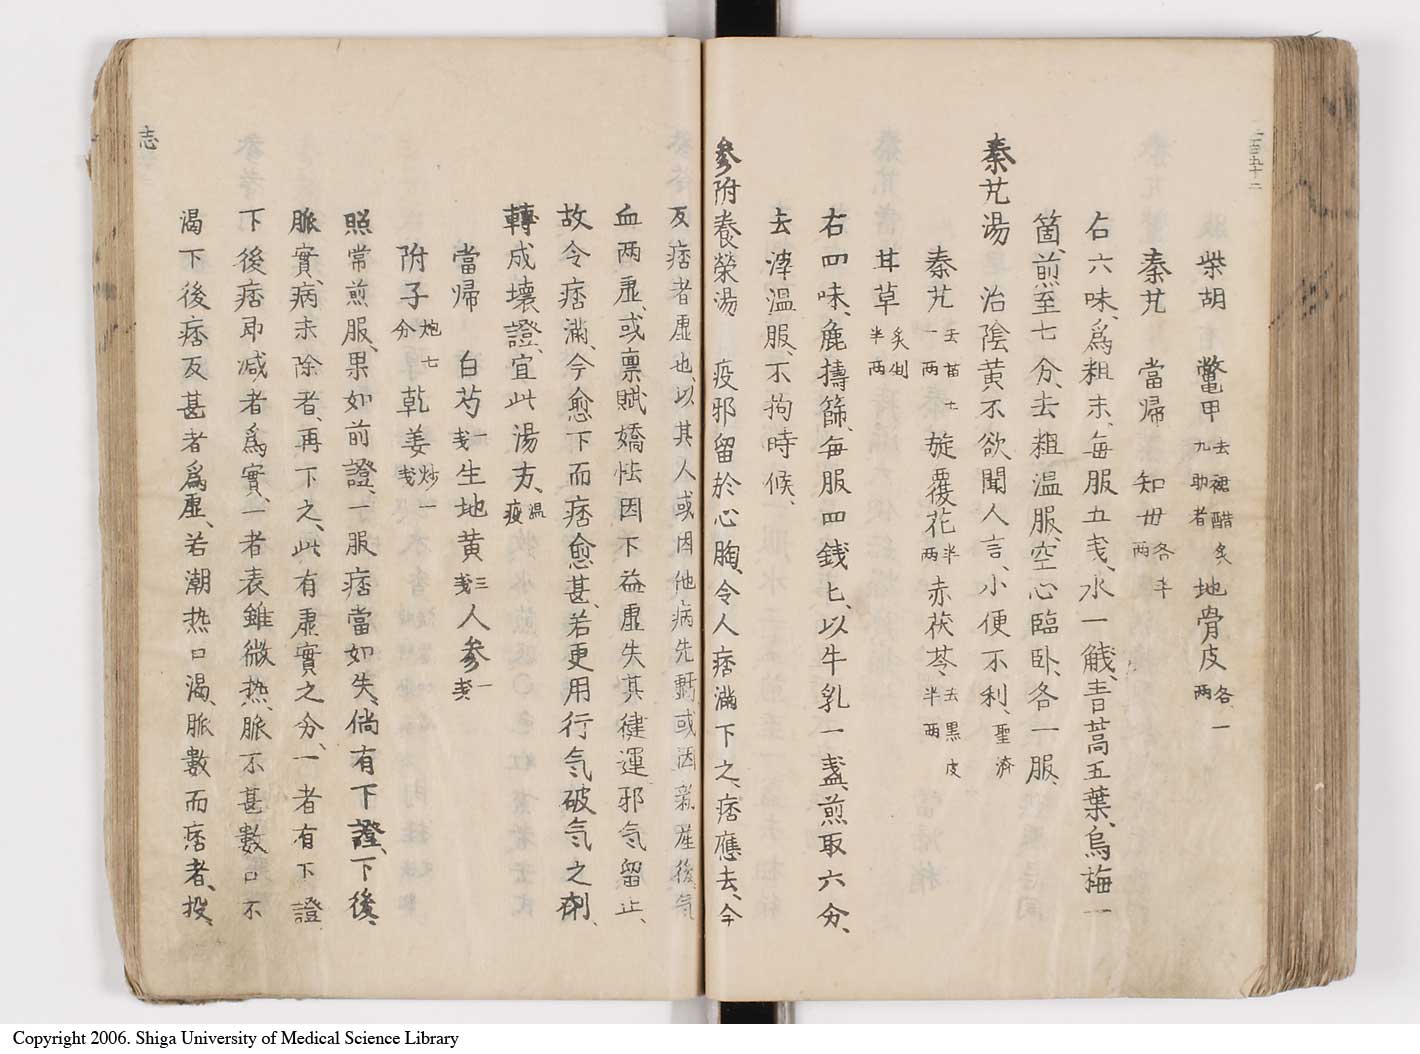 二百九十二
柴胡 鼈甲去裙醋炙九肋者 地骨皮各一兩
秦艽 當帰 知母各半兩
右六味、爲粗末、毎服五戔、水一觥、青蒿五葉、烏梅一
箇、煎至七分、去粗温服、空心臨卧、各一服、
秦艽湯 治陰黄不欲聞人言、小便不利、聖濟
秦艽去苗土一兩 旋覆花半兩 赤茯苓去黒皮半兩
甘草炙剉半兩
右四味、麁擣篩、毎服四銭匕、以牛乳一盞、煎取六分、
去滓温服、不拘時候、
参附養榮湯 疫邪留於心胸、令人痞滿下之、痞應去、今
反痞者虚也、以其人或因他病先虧、或因新産後、气
血两虚、或禀賦嬌怯因下益虚失其健運邪气留止、
故令痞滿、今愈下而痞愈甚、若更用行气破气之剤、
轉成壊證、宜此湯方、温疫
當帰 白芍一戔 生地黄三戔 人参一戔
附子炮七分 乾姜炒一戔
照常煎服、果如前證、一服痞當如失、倘有下證、下後、
脈實、病未除者、再下之、此有虚實之分、一者有下證
下後痞即减者爲實、一者表雖微熱、脈不甚數口不
渇下後痞反甚者爲虚、若潮热口渇、脈數而痞者、投、
志
Copyright 2006. Shiga University of Medical Science Library